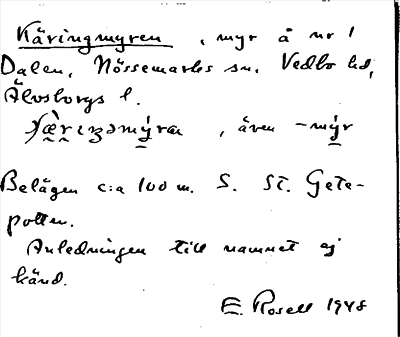 Käringmyren, myr å nr 1
Dalen, Nössemarks sn. Vedbo hd,
Älvsborgs l.
, även -mýr
Belägen c:a 100 m. S. St. Gete-
potten.
Anledningen till namnet ej
känd.
E. Rosell 1948